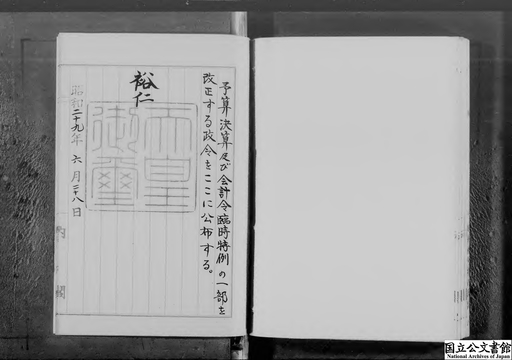 予算決算及び会計令臨時特例の一部を
改正する政令をここに公布する。
裕仁
天皇
御璽
昭和二十九年六月二十八日
内閣
国立公文書館
National Archives of Japan